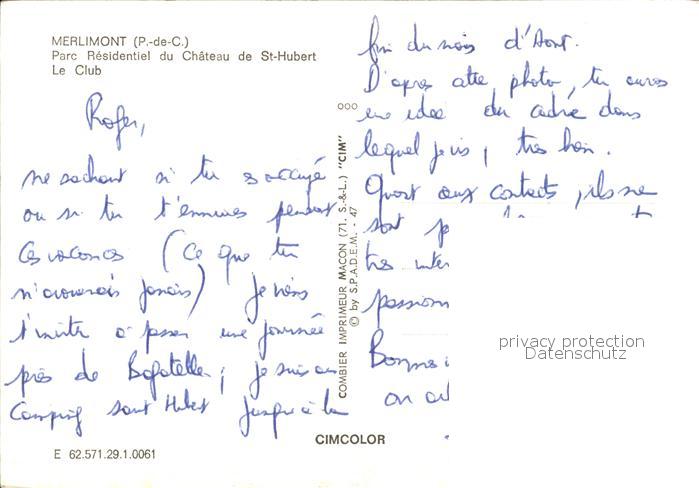 MERLIMONT (P.-de-C.)
Parc Résidentiel du Château de St-Hubert
Le Club
Roger,
ne sachant si tu es occupé
ou si tu t'ennuies pendant
ces vacances (ce que tu
n'avouerais jamais) je viens
t'inviter à passer une journée
près de Bagatelle; je suis au
Camping saint Hubert jusqu'à la
fin du mois d'Aout.
D'après cette photo, tu auras
une idée du cadre dans
lequel je vis, très bien.
Quant aux contacts, ils ne
sont
très
Bonnes
on
COMBIER IMPRIMEUR MACON (71, S.-&-L.) "CIM"
© by S.P.A.D.E.M. - 47
privacy protection
Datenschutz
CIMCOLOR
E 62.571.29.1.0061